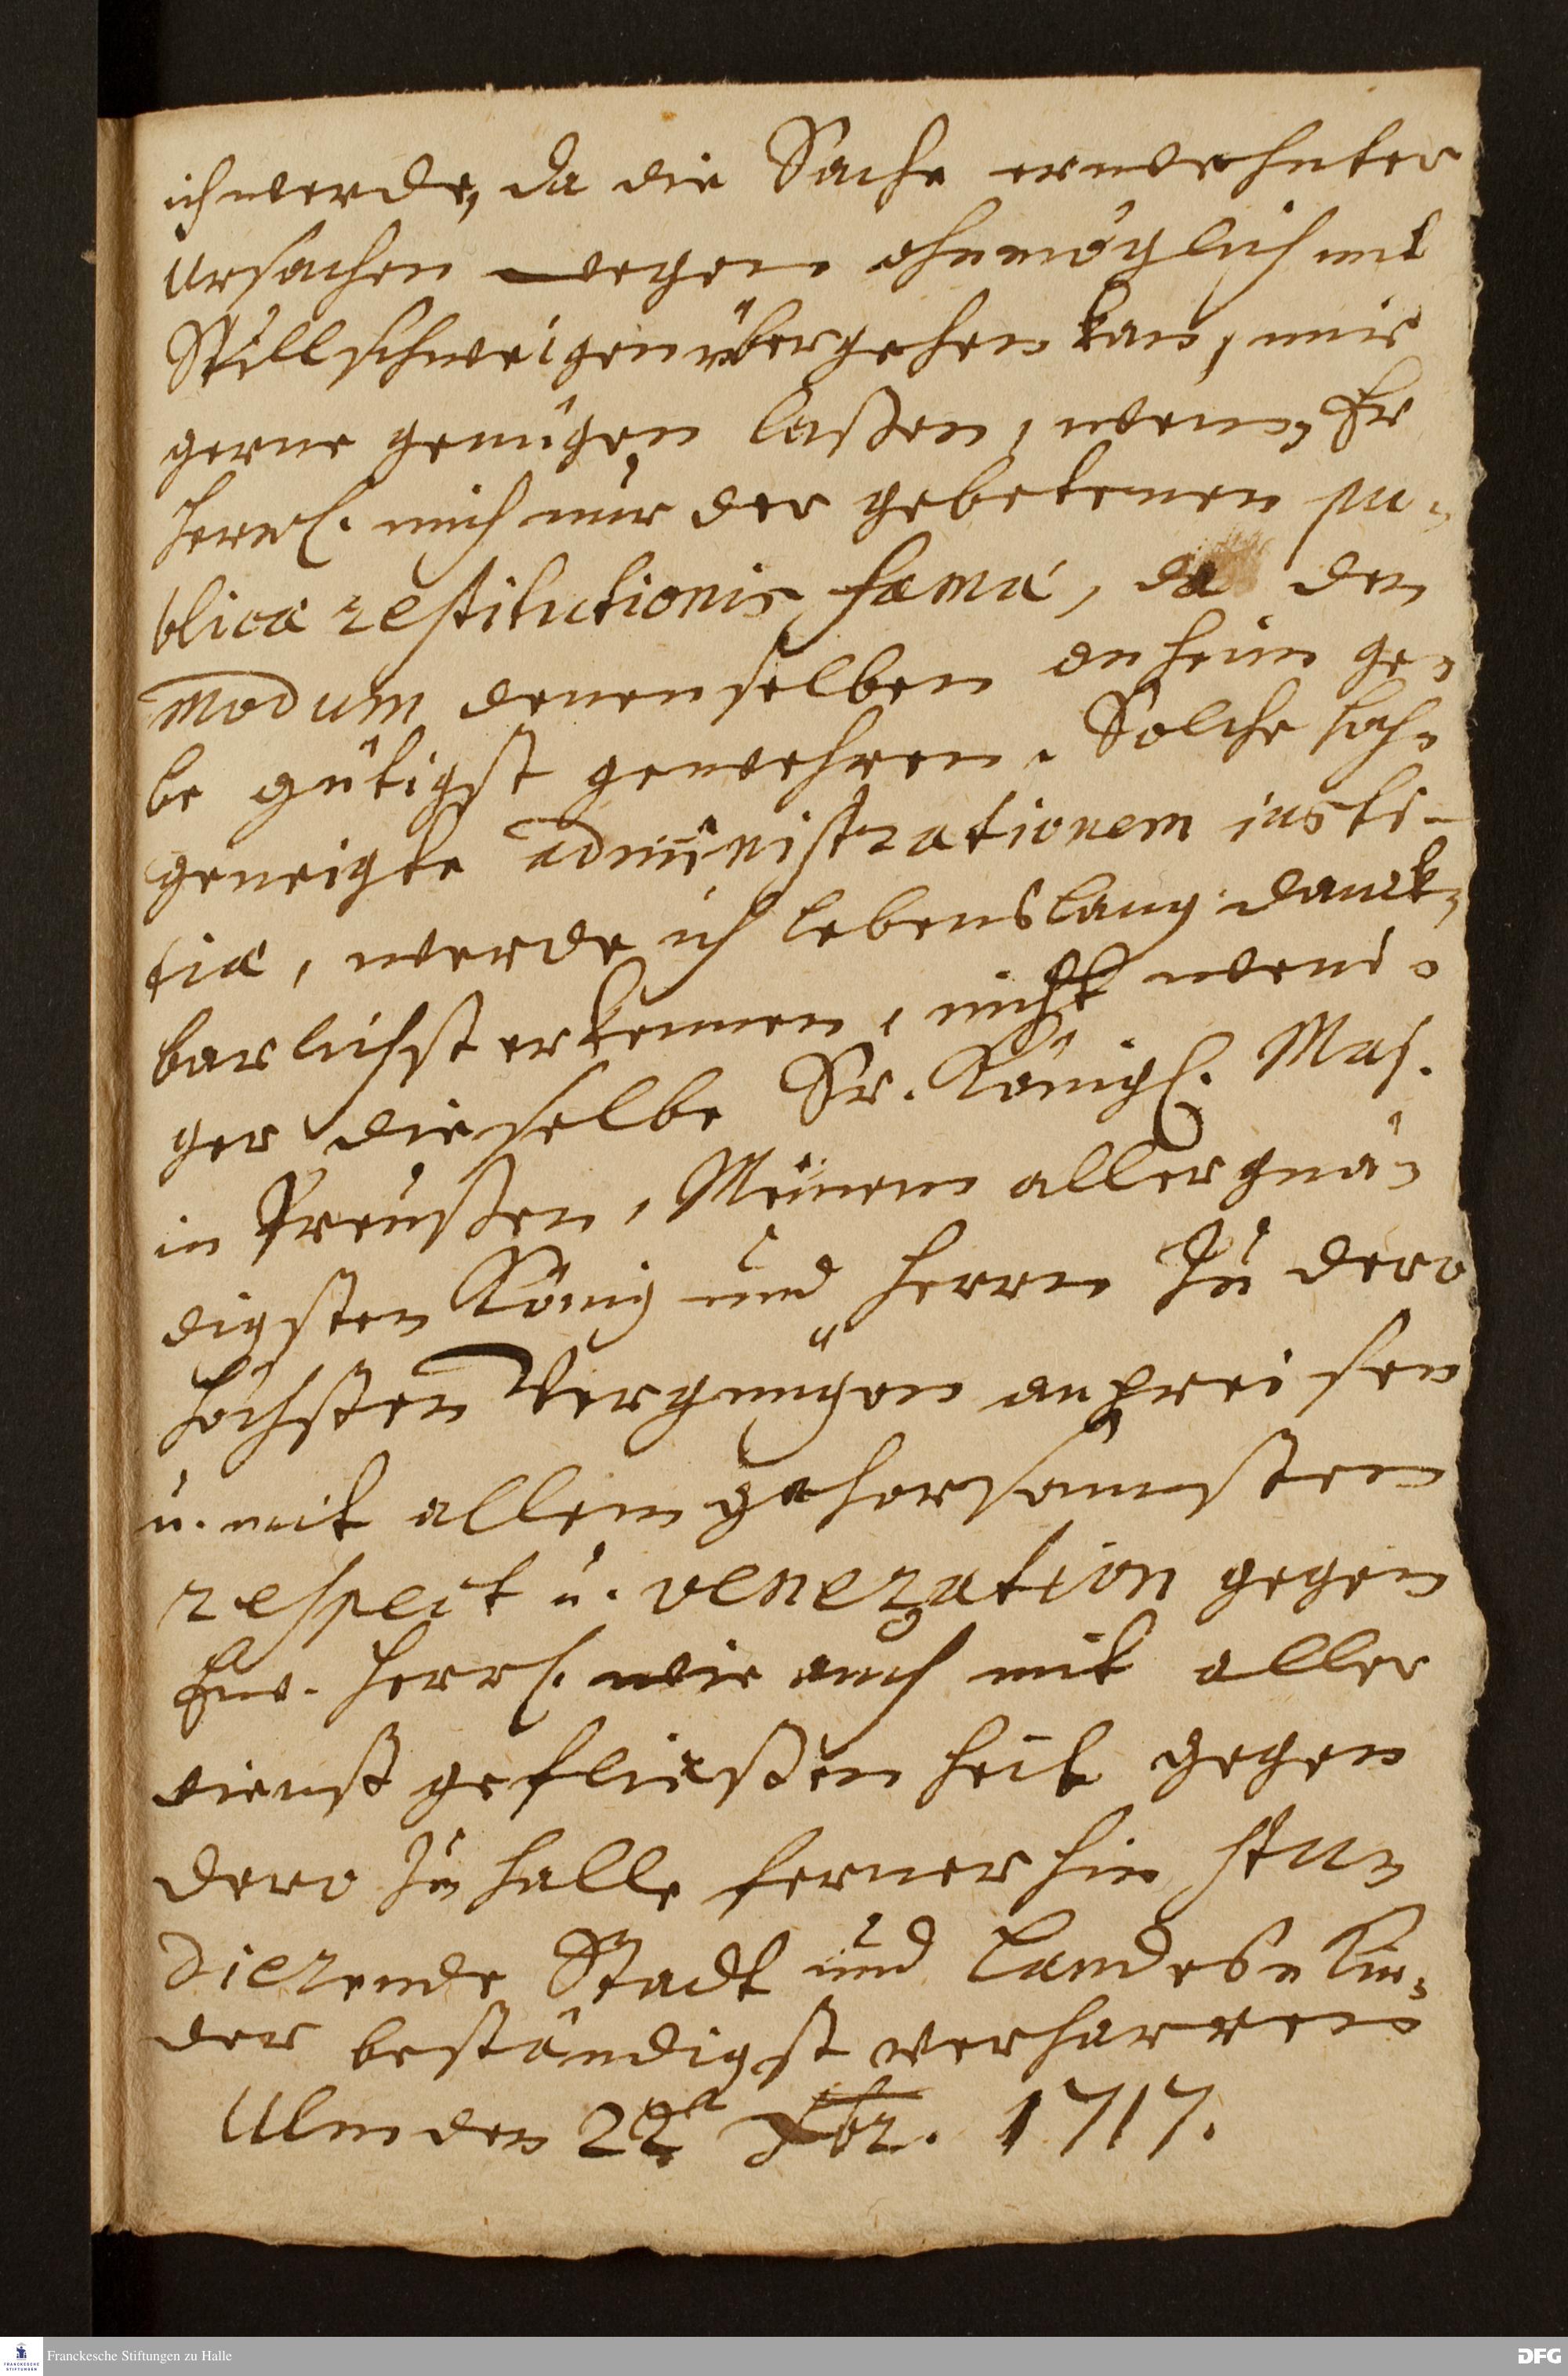 ich werde, da die Sache erwehnter
Ursachen wegen ohnmöglich mit
Stillschweigen übergehen kan, mir
gerne genügen laßen, wenn Ew
Herrl. mich nur der gebetenen pu-
blicæ restitutionis famæ, da den
modum denenselben anheim ge-
be gütigst gewehren. Solche hoch-
geneigte administrationem justi-
tiæ, werde ich lebenslang danck-
barlichst erkennen, nicht weni-
ger dieselbe Sr. Königl. Maj.
in Preußen, Meinem allergnä-
digsten König und Herrn zu dero
höchsten Vergnügen anpreisen
u. mit allem gehorsamsten
respect u. veneration gegen
Ew. Herrl. wie auch mit aller
dienstgefließenheit gegen
dero zu Halle fernerhin stu-
dierende Stadt und Landes-Kin-
der beständigst verharren
Ulm den 22 Xbr. 1717.
Franckesche Stiftungen zu Halle
DFG